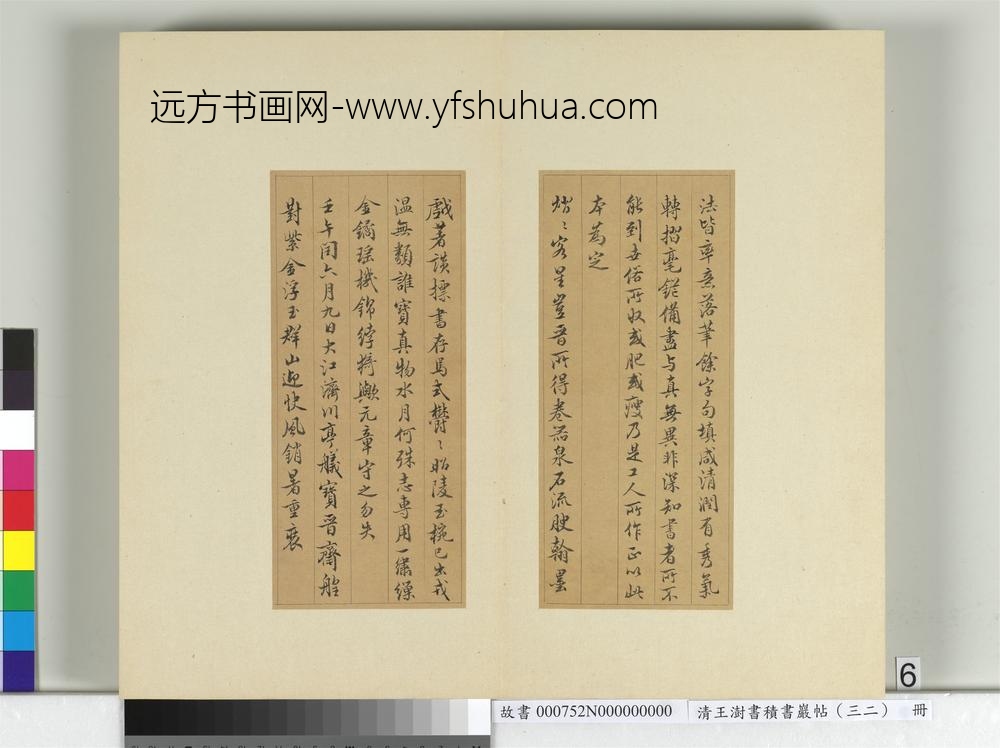 远方书画网-www.yfshuhua.com
法皆率意落筆餘字句填咸清潤有秀氣
轉摺毫鋩備盡与真無異非深知書者所不
能到世俗所收或肥或瘦乃是工人所作正以此
本為定
熠熠客星豈晉所得卷器泉石流腴翰墨
戲著談標書存焉式鬱鬱昭陵玉椀已出戎
温無類誰寶真物水月何殊志專用一繡繅
金鐍瑶機錦綍猗歟元章守之勿失
壬午閏六月九日大江濟川亭艤寶晉齋舩
對紫金浮玉群山迎快風銷暑重裝
6
故書 000752N000000000
清王澍書積書巖帖（三二） 冊